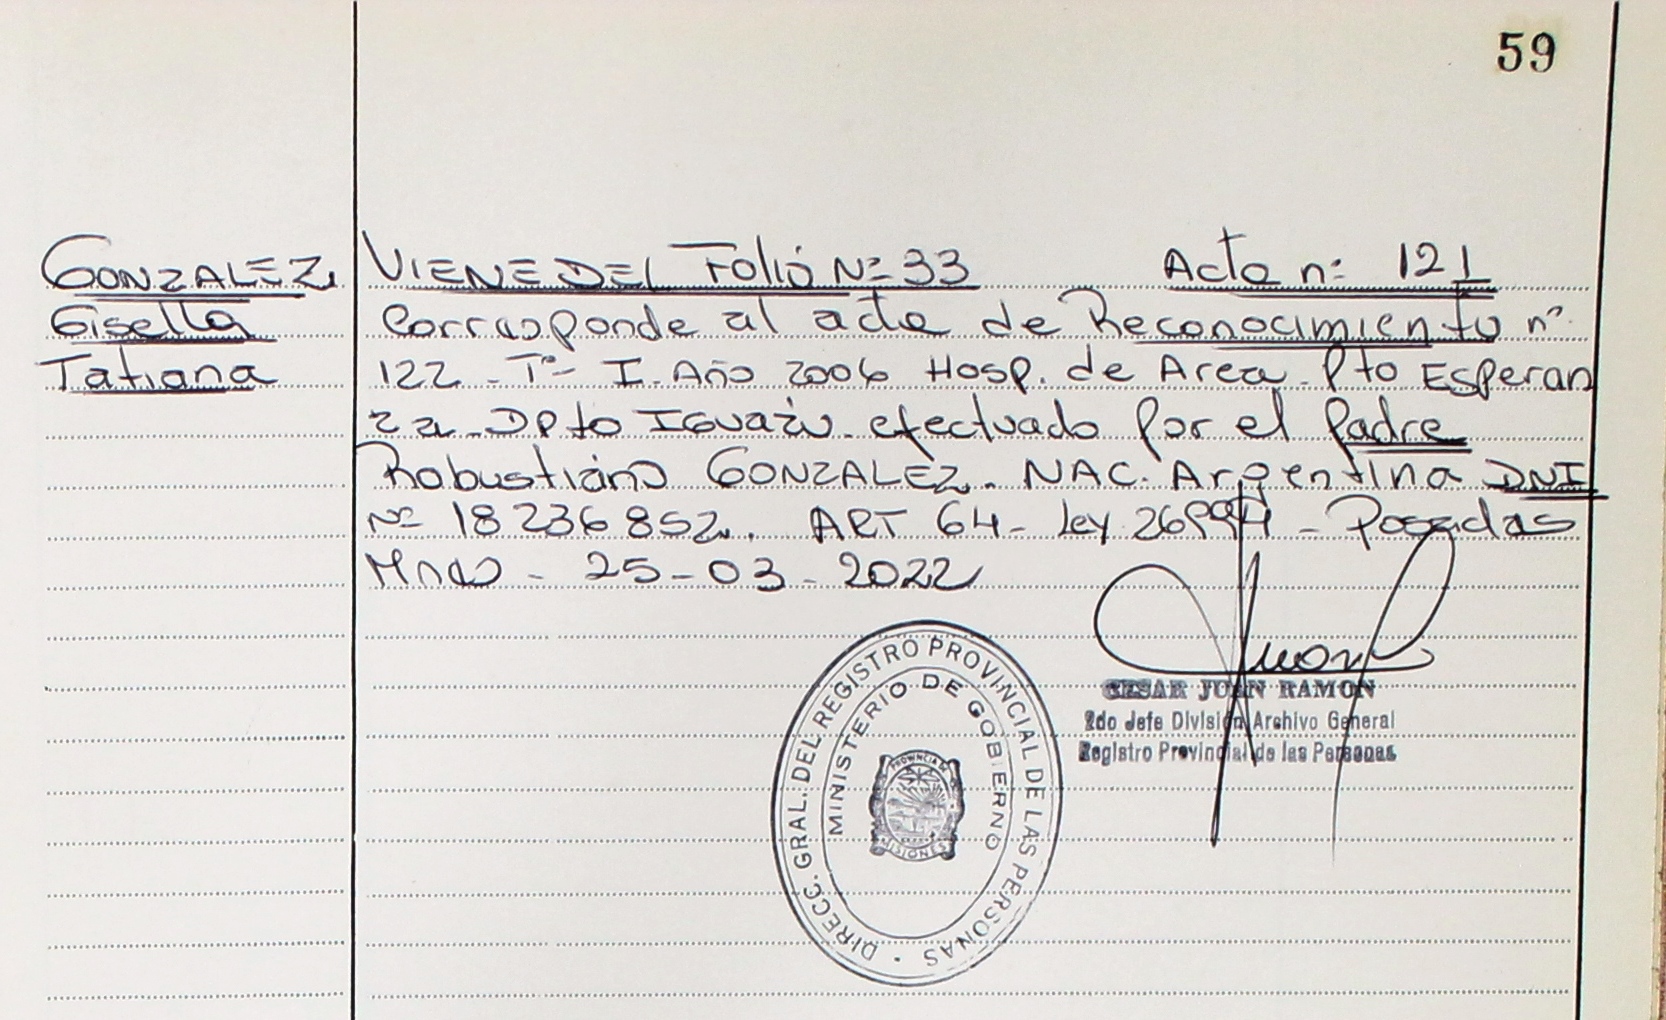 59
GONZALEZ
Gisella
Tatiana
VIENE DEL FOLIO Nº 33 Acta nº 121
Corresponde al acta de Reconocimiento nº
122 - Tº I. Año 2006 Hosp. de Area. Pto Esperan
za. Dpto IGuazu. efectuado por el padre
Robustiano GONZALEZ. NAC. Argentina DNI
Nº 18236852. ART 64 - Ley 26994 - Posadas
Mnes - 25-03-2022
CESAR JUAN RAMON
2do Jefe División Archivo General
Registro Provincial de las Personas
DIRECC. GRAL. DEL REGISTRO PROVINCIAL DE LAS PERSONAS
MINISTERIO DE GOBIERNO
PROVINCIA DE
MISIONES